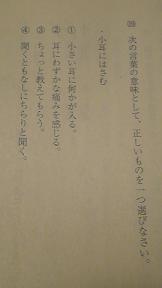 ⑩ 次の言葉の意味として、正しいものを一つ選びなさい。
・小耳にはさむ
① 小さい耳に何かが入る。
② 耳にわずかな痛みを感じる。
③ ちょっと教えてもらう。
④ 聞くともなしにちらりと聞く。